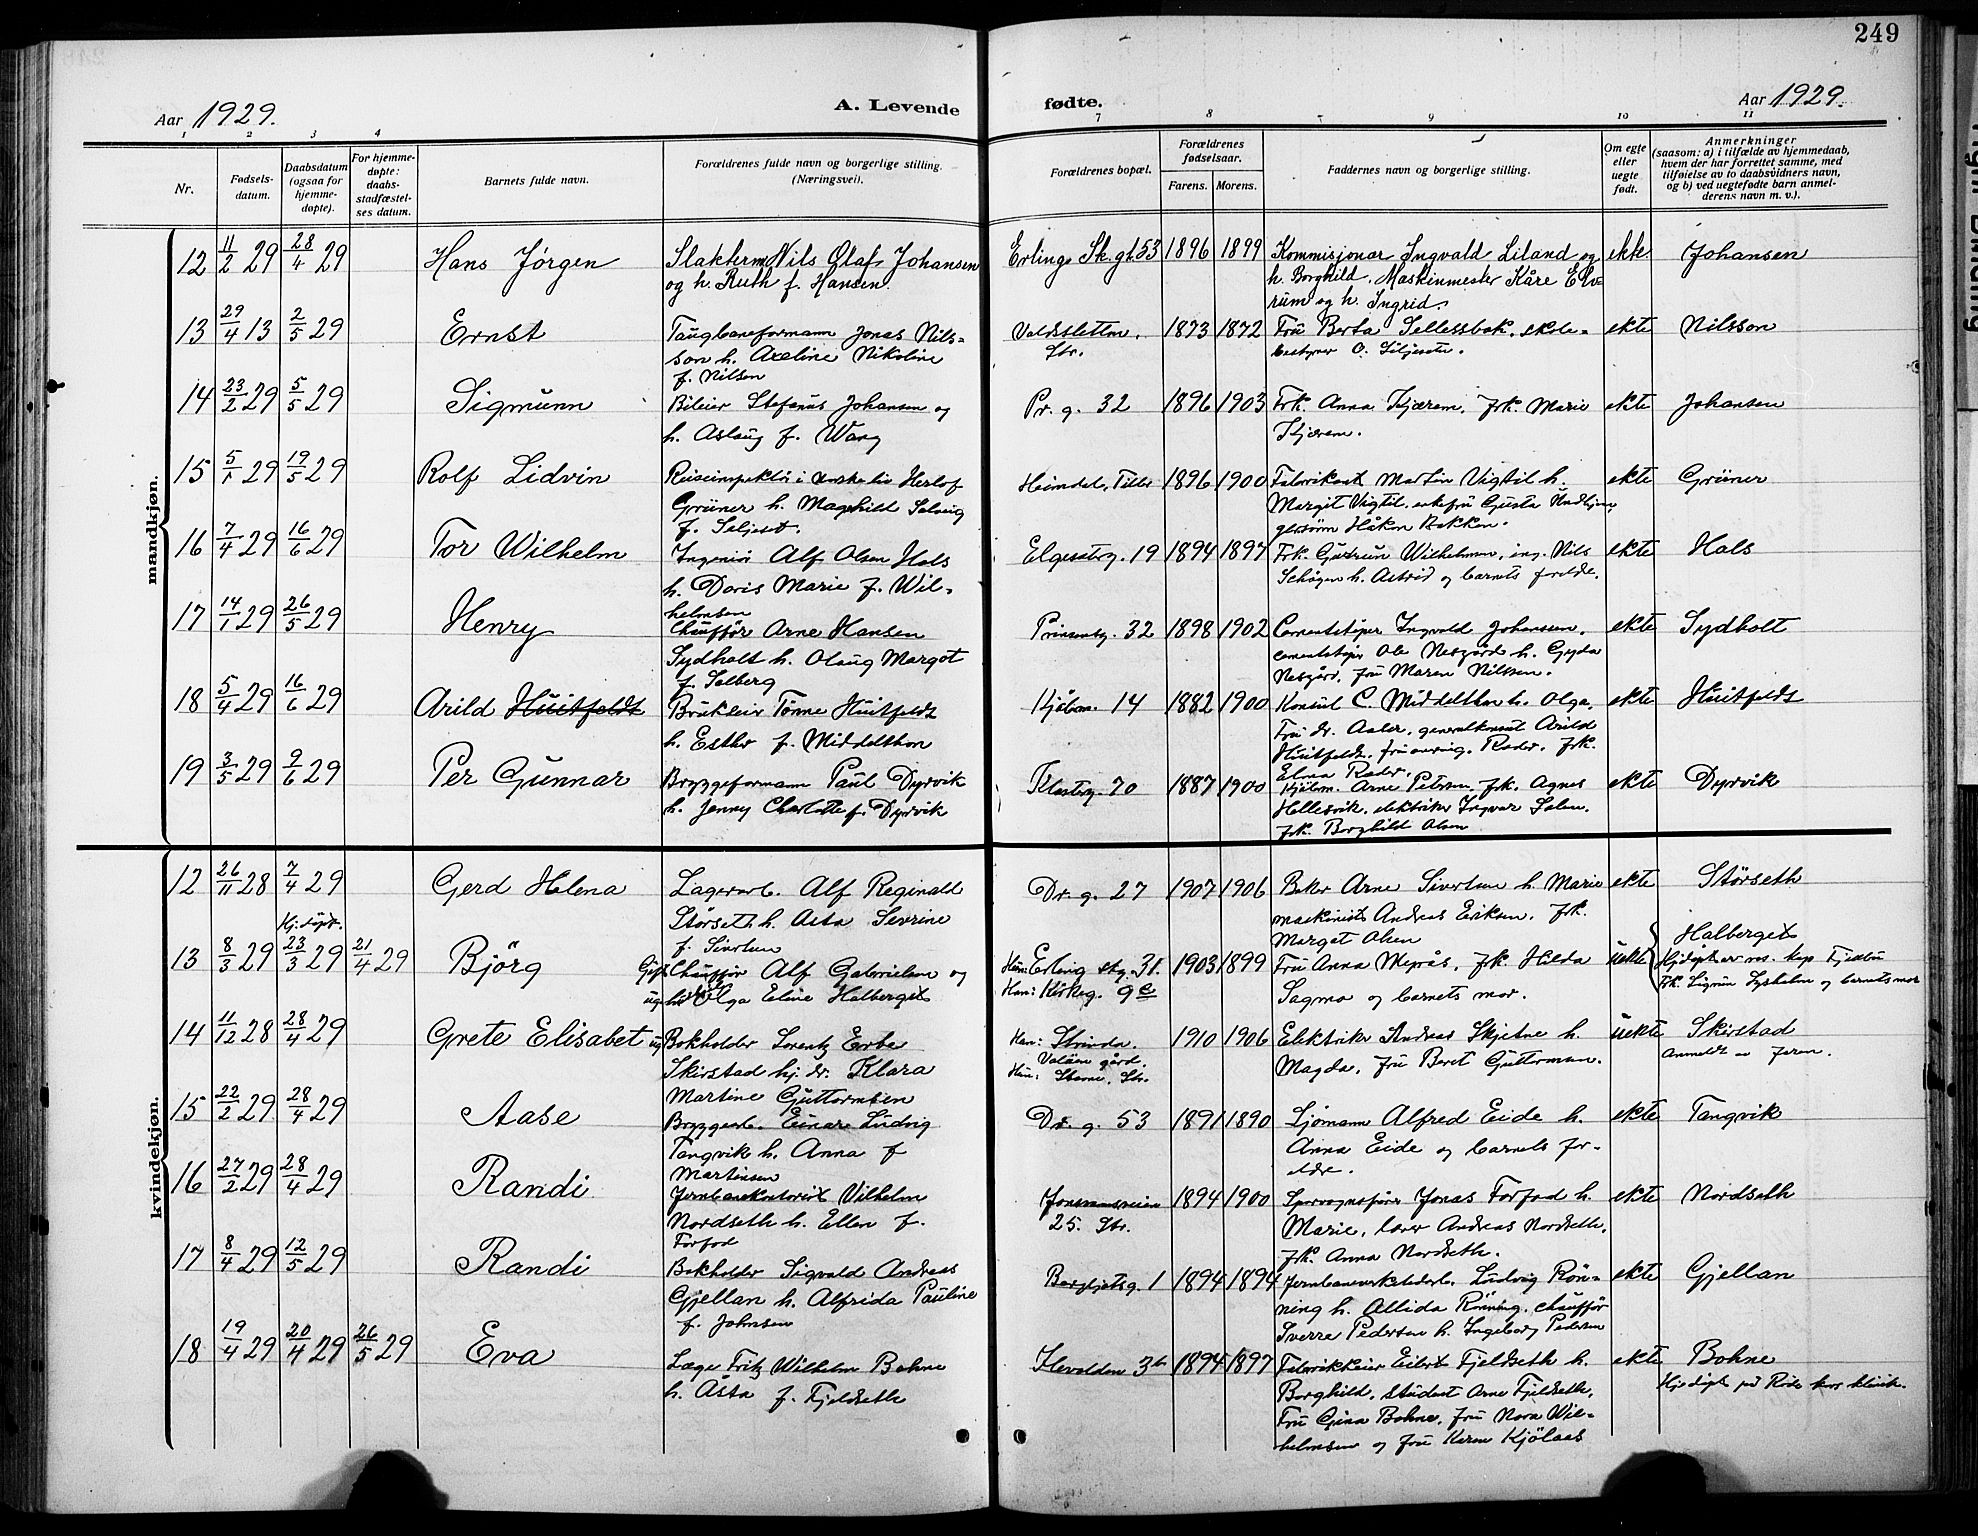 249
Aar 1929.
A. Levende
fødte.
Aar 1929.
1 2 3 4
7 8 7 9 10 11
Nr.
Fødsels-
datum.
Daabsdatum
(ogsaa for
hjemme-
døpte).
For hjemme-
døpte:
daabs-
stadfæstel-
ses datum.
Barnets fulde navn.
Forældrenes fulde navn og borgerlige stilling.
(Næringsvei).
Forældrenes bopæl.
Forældrenes
fødselsaar.
Farens. Morens.
Faddernes navn og borgerlige stilling.
Om egte
eller
uegte
født.
Anmerkninger
(saasom: a) i tilfælde av hjemmedaab,
hvem der har forrettet samme, med
tilføielse av to daabsvidners navn,
og b) ved uegtefødte barn anmel-
derens navn m. v.).
mandkjøn.
12 11/2 29 28/4 29 Hans Jørgen Slakterm. Nils Olaf Johansen Erling Sk. gt. 53 1896 1899 Kommisjonær Ingvald Liland og ekte Johansen
og h. Ruth f. Hansen. h. Borghild. Maskinmester Kåre Elv-
rum og h. Ingrid.
13 29/4 13 2/5 29 Ernst Taugbaneformann Jonas Nils- 1873 1872 Fru Berta ekte Nilsson
son h. Axeline Nikoline Str. bestyrer O.
f. Nilsen
14 23/2 29 5/5 29 Sigmunn Bileier Stefanus Johansen og Pr. g. 32 1896 1903 Frk. Anna Kjærem, frk. Marie ekte Johansen
h. Aslaug f. Wang Kjærem.
15 5/1 29 19/5 29 Rolf Lidvin Reiseinspektør i Herlof Heimdal, Tiller 1896 1900 Fabrikant Martin Vigtil h. ekte Grüner
Grüner h. Maghild Solveig Margit Vigtil, enkefru Gusta
f. Seljeset. Håkon Bakken.
16 7/4 29 16/6 29 Tor Wilhelm Ingeniør Alf Olsen Hals Elgesetrg. 19 1894 1897 Frk. Gudrun Wilhelmsen, ing. Nils ekte Hals
h. Doris Marie f. Wil- h. Astrid og barnets foreldre.
helmsen
17 14/1 29 26/5 29 Henry Chauffør Arne Hansen Prinsensg. 32 1898 1902 Cementstøper Ingvald Johansen, ekte Sydholt
Sydholt h. Olaug Margot cementstøper Ole Nesgård h. Gyda
f. Solberg Nesgård, fru Maren Nilssen.
18 5/4 29 16/6 29 Arild Huitfeldt Brukseier Tønne Huitfeldt Kjøbm. 14 1882 1900 Konsul C. Middelthon h. Olga, ekte Huitfeldt
h. Esther f. Middelthon Fru dr. generalkonsul Arild
Huitfeldt, Roder, frk.
Elna Roder.
19 3/5 29 9/6 29 Per Gunnar Bryggeformann Paul Dyrvik Klosterg. 70 1887 1900 Kjøbm. Arne Petersen, frk. Agnes ekte Dyrvik
h. Jenny Charlotte f. Dyrvik Hellesvik, elektriker Ingvar Salen,
frk. Borghild Olsen
kvindekjøn.
12 26/11 28 7/4 29 Gerd Helena Lagerarb. Alf Reginald Dr. g. 27 1907 1906 Baker Arne Sivertsen h. Marie ekte Størseth
Størseth h. Asta Sevrine maskinist Andreas Eriksen, frk.
f. Sivertsen Margot Olsen
Hj. døpt.
13 8/3 29 23/3 29 21/4 29 Bjørg Gift Chauffør Alf Gabrielsen og Hun: Erling skg. 31. 1903 1899 Fru Anna Meprås, frk. Hilda uekte Halberget
Olga Eline Halberget Han: Kirkeg. 9 Sagmo og barnets mor. Hjdøpt av res. kap. Fjeldbu
Frk. Sigrun Sysholm og barnets mor
14 11/12 28 28/4 29 Grete Elisabet ug Bokholder Lorentz Erbe Han: Strinda. 1910 1906 Elektriker Andreas Skjetne h. uekte Skirstad
Skirstad hj. dr. Klara Valøen gård. Magda, fru Beret Guttormsen. Anmeldt av faren.
Martine Guttormsen Hun: Stavne, Str.
15 22/2 29 28/4 29 Aase Bryggearb. Einar Ludvig Dr. g. 53 1891 1890 Sjømann Alfred Eide h. ekte Tangvik
Tangvik h. Anna f Anna Eide og barnets for-
Martinsen eldre.
16 27/2 29 28/4 29 Randi Jernbanekontorist Vilhelm Jonsvannsveien 1894 1900 Sporvognsfører Jonas Forfod h. ekte Nordseth
Nordseth h. Ellen f. 25. Str. Marie, lærer Andreas Nordseth,
Forfod frk. Anna Nordseth.
17 8/4 29 12/5 29 Randi Bokholder Sigvald Andreas Bergljotsg. 1 1894 1894 Jernbaneverkstedarb. Ludvig Røn- ekte Gjellan
Gjellan h. Alfrida Pauline ning h. Allida Rønning, chauffør
f. Johnsen Sverre Pedersen h. Ingeborg Pedersen
18 19/4 29 20/4 29 26/5 29 Eva Læge Fritz Wilhelm Bohne Ilevolden 3b 1894 1897 Fabrikkeier Eilert Fjeldseth h. ekte Bohne
h. Åsta f. Fjeldseth Borghild, student Arne Fjeldseth, Hjdøpt på Røde kors klinik.
Fru Gina Bohne, fru Nora Wil-
helmsen og fru Karen Kjølaas